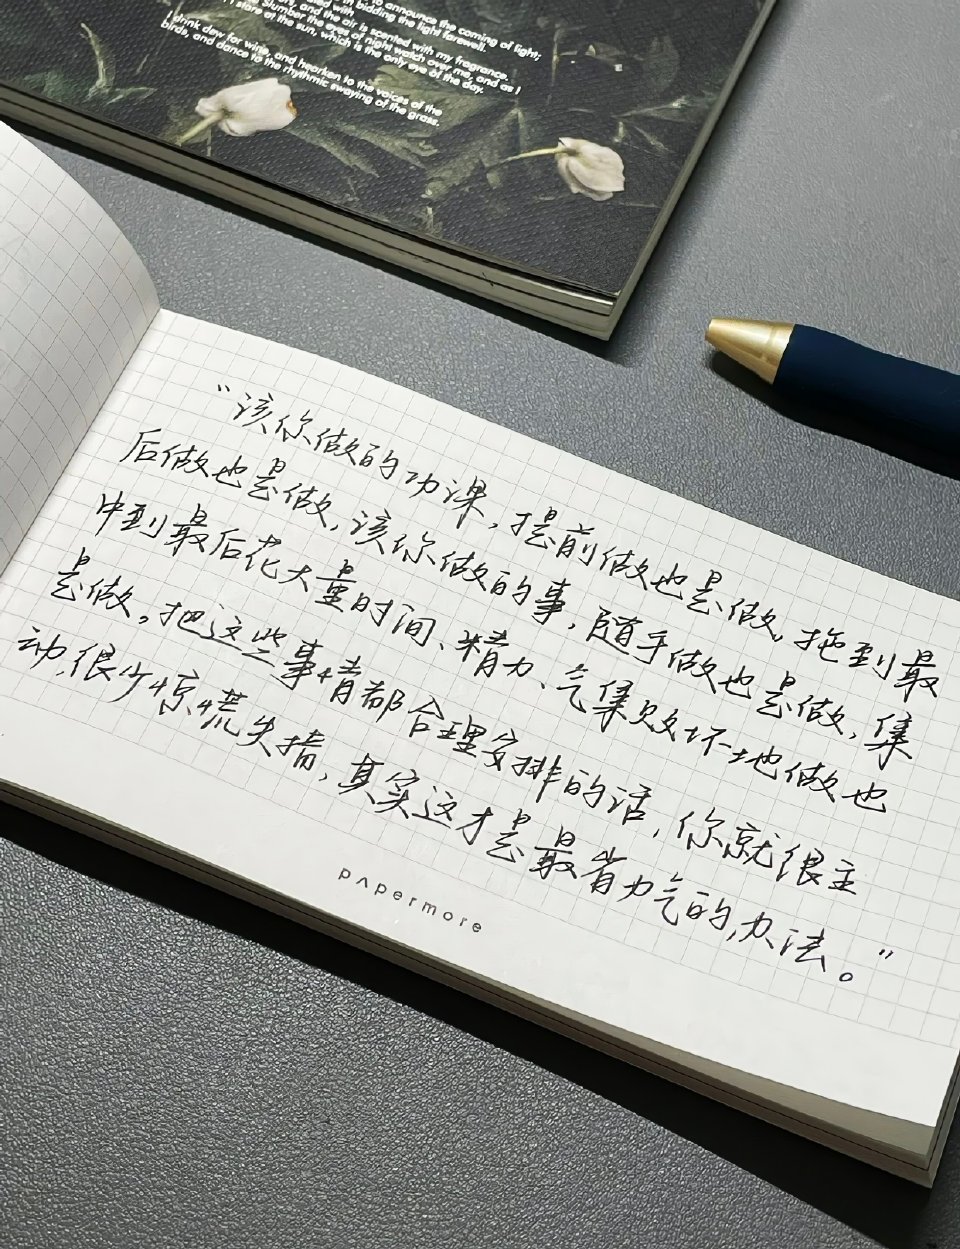 to announce the coming of light;
in bidding the light farewell.
and the air is scented with my fragrance.
Slumber the eyes of night watch over me, and as I
I stare at the sun, which is the only eye of the day.
drink dew for wine, and hearken to the voices of the
birds, and dance to the rhythmic swaying of the grass.
“该你做的功课，提前做也是做，拖到最
后做也是做，该你做的事，随手做也是做，集
中到最后花大量时间、精力、气集败坏地做也
是做。把这些事情都合理安排的话，你就很主
动，很少惊慌失措，其实这才是最省力气的办法。”
papermore